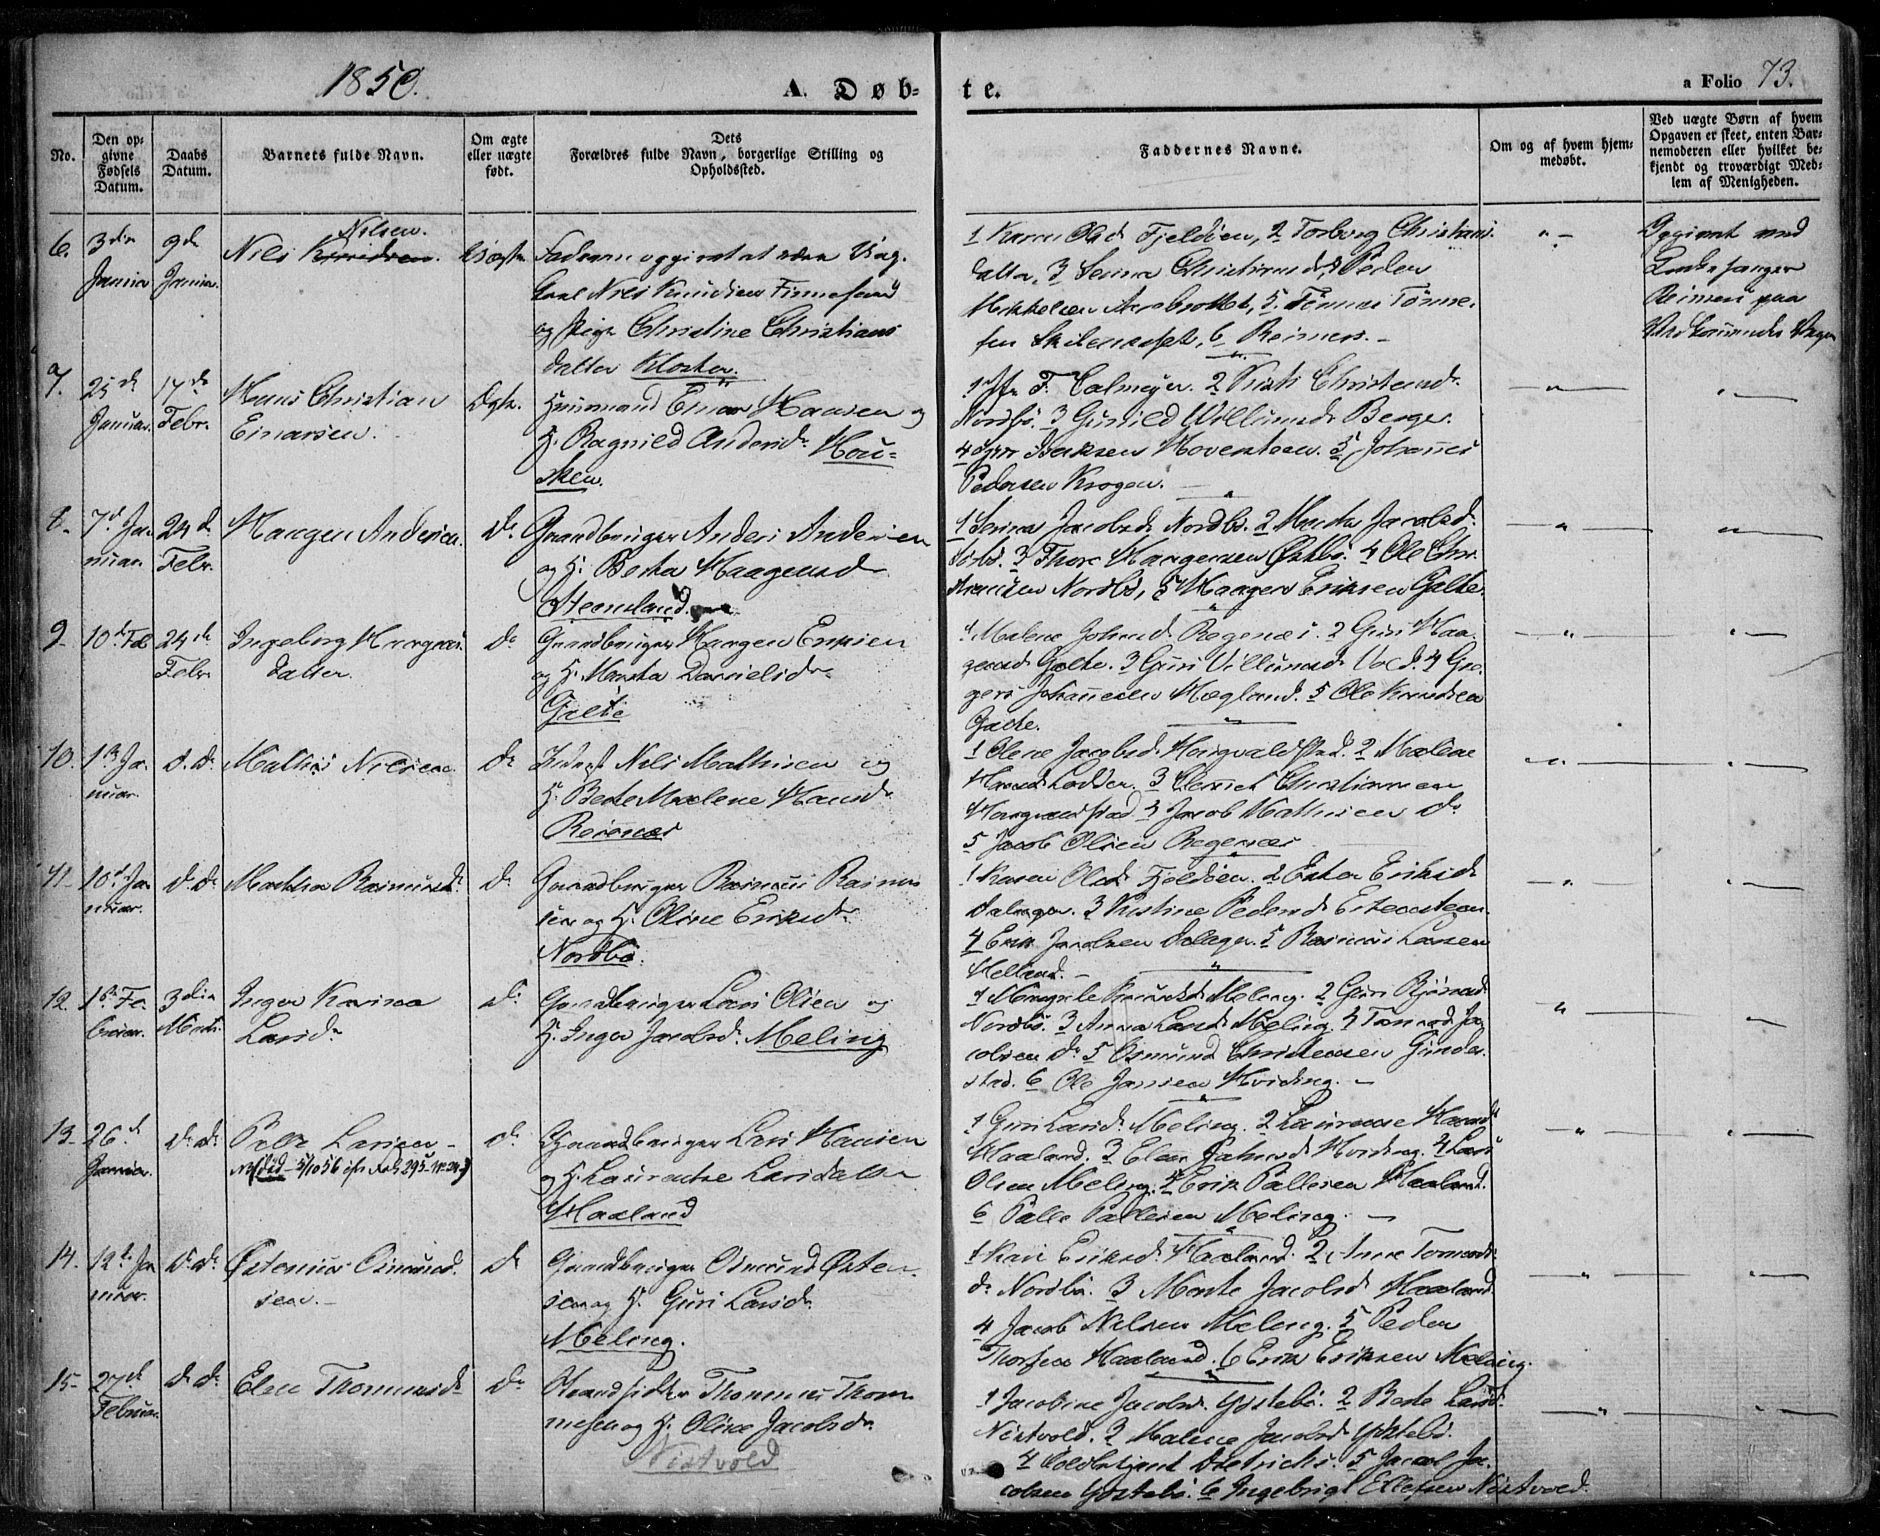 1850.
A. Døb-
te.
a Folio 73.
No.
Den op-
givne
Fødsels
Datum.
Daabs
Datum.
Barnets fulde Navn.
Om ægte
eller uægte
født.
Dets
Forældres fulde Navn, borgerlige Stilling og
Opholdssted.
Faddernes Navne.
Om og af hvem hjem-
medøbt.
Ved uægte Børn af hvem
Opgaven er skeet, enten Bar-
nemoderen eller hvilket be-
kjendt og troværdigt Med-
lem af Menigheden.
6. 3die
Januar
9de
Januar
Nilsen.
Nils Knudsen.
Uægte
Faderen opgivet at være Ung-
karl Nils Knudsen Finnesand
og Pige Christine Christians
datter Kloster.
1 Karen Olsd. Fjeldøen, 2 Torborg Christians
datter, 3 Serina Christiansd., Peder
Mikkelsen Aarebrottet, 5. Tønnes Tønne-
sen
, 6 Reimers.
Opgivet ved
Reimers paa
7.
25de
Januar.
17de
Febr.
Hans Christian
Einarsen.
Ægte.
Huusmand Einar Hansen og
H. Ragnild Andersd. Hau-
sken.
1 Jfr. F. Calmeyer. 2 Christensd.
Nordbö. 3 Gunild Villumsd. Berge.
4 Isaksen 5 Johannes
Pedersen Krogen.
8. 7d Ja-
nuar.
24de
Febr.
Haagen Andersen
do
Gaardbruger Anders Andersen
og H. Berta Haagensd.
Steensland.
1 Serina Jacobsd. Nordbö. 2 Marta Jacobsd.
3 Thore Haagensen Østbö. 4 Ole Chri-
stensen Nordbö, 5 Haagen Eriksen Galte.
9. 10d Feb
24de
Febr.
Ingeborg Haagens-
datter.
do
Gaardbruger Haagen Eriksen
og H. Marta Danielsd.
Galte
1 Malene Johnsd. Regenæs. 2 Guri Haa-
gensd. Galte. 3 Guri Villumsd. Vold. 4 Gre-
gers Johannesen Hægland. 5 Ole Knudsen
Galte.
10. 1ste Ja-
nuar.
d. d.
Mathis Nilsen
do
Nils Mathisen og
H. Berte Malene Hansd.
Reienæs
1 Olene Jacobsd. 2 Malene
Hansd. Lodden. 3 Christiansen
4 Jacob Mathisen do
5 Jacob Olsen Regenæs
11. 10d Ja-
nuar.
d. d.
Martha Rasmusd.
do
Gaardbruger Rasmus Rasmus
sen og H. Oline Eriksd.
Nordbö.
1 Karen Olsd. Fjeldöen. 2 Ester Eriksd.
Dalager. 3 Kristine Pedersd. Eltensteen.
4 Erik Jacobsen Dalager. 5 Rasmus Larsen
Helland.
12. 1ste Fe-
bruar.
3die
Marts.
Inger Karina
Larsd.
do
Gaardbruger Lars Olsen og
H. Inger Jacobsd. Meling
1 Margrete Knudsd. Meling. 2 Guri Björnsd.
Nordbö. 3 Anna Larsd. Meling. 4 Tormod Ja-
cobsen do 5 Osmund Christensen Gunder-
stad. 6 Ole Jansen Hviding.
13. 26d
Januar.
d. d.
Palle Larsen
død 5/10 56 295
do
Gaardbruger Lars Hansen
og H. Laurentse Larsdatter
Haaland
1 Guri Larsd. Meling. 2 Laurense Hansd.
Haaland. 3 Elen Jahnsd. Hviding. 4 Lars
Olsen Meling. 5 Erik Pallesen Haaland.
6 Palle Pallesen Meling.
14. 12te Ja-
nuar.
d. d.
Østenius Osmund-
sen.
do
Gaardbruger Osmund Østen-
sen og H. Guri Larsd.
Meling.
1 Kari Eriksd. Haaland. 2 Anne Tormods-
d. Nordbö. 3 Marte Jacobsd. Haaland
4 Jacob Nilsen Meling. 5 Peder
Thorsen Haaland. 6 Erik Eriksen Meling.
15. 27de
Februar
d. d.
Elen Thomasd.
do
Strandsidder Thomas Thom-
mesen og H. Oline Jacobsd.
Nistvold
1 Jacobine Jacobsd. Ystebö. 2 Berte Larsd.
Nistvold. 3 Malene Jacobsd. Ystebö.
4 Didrichs. 5 Jacob Ja-
cobsen Ystebö. 6 Ingebrigt Ellefsen Nistvold.